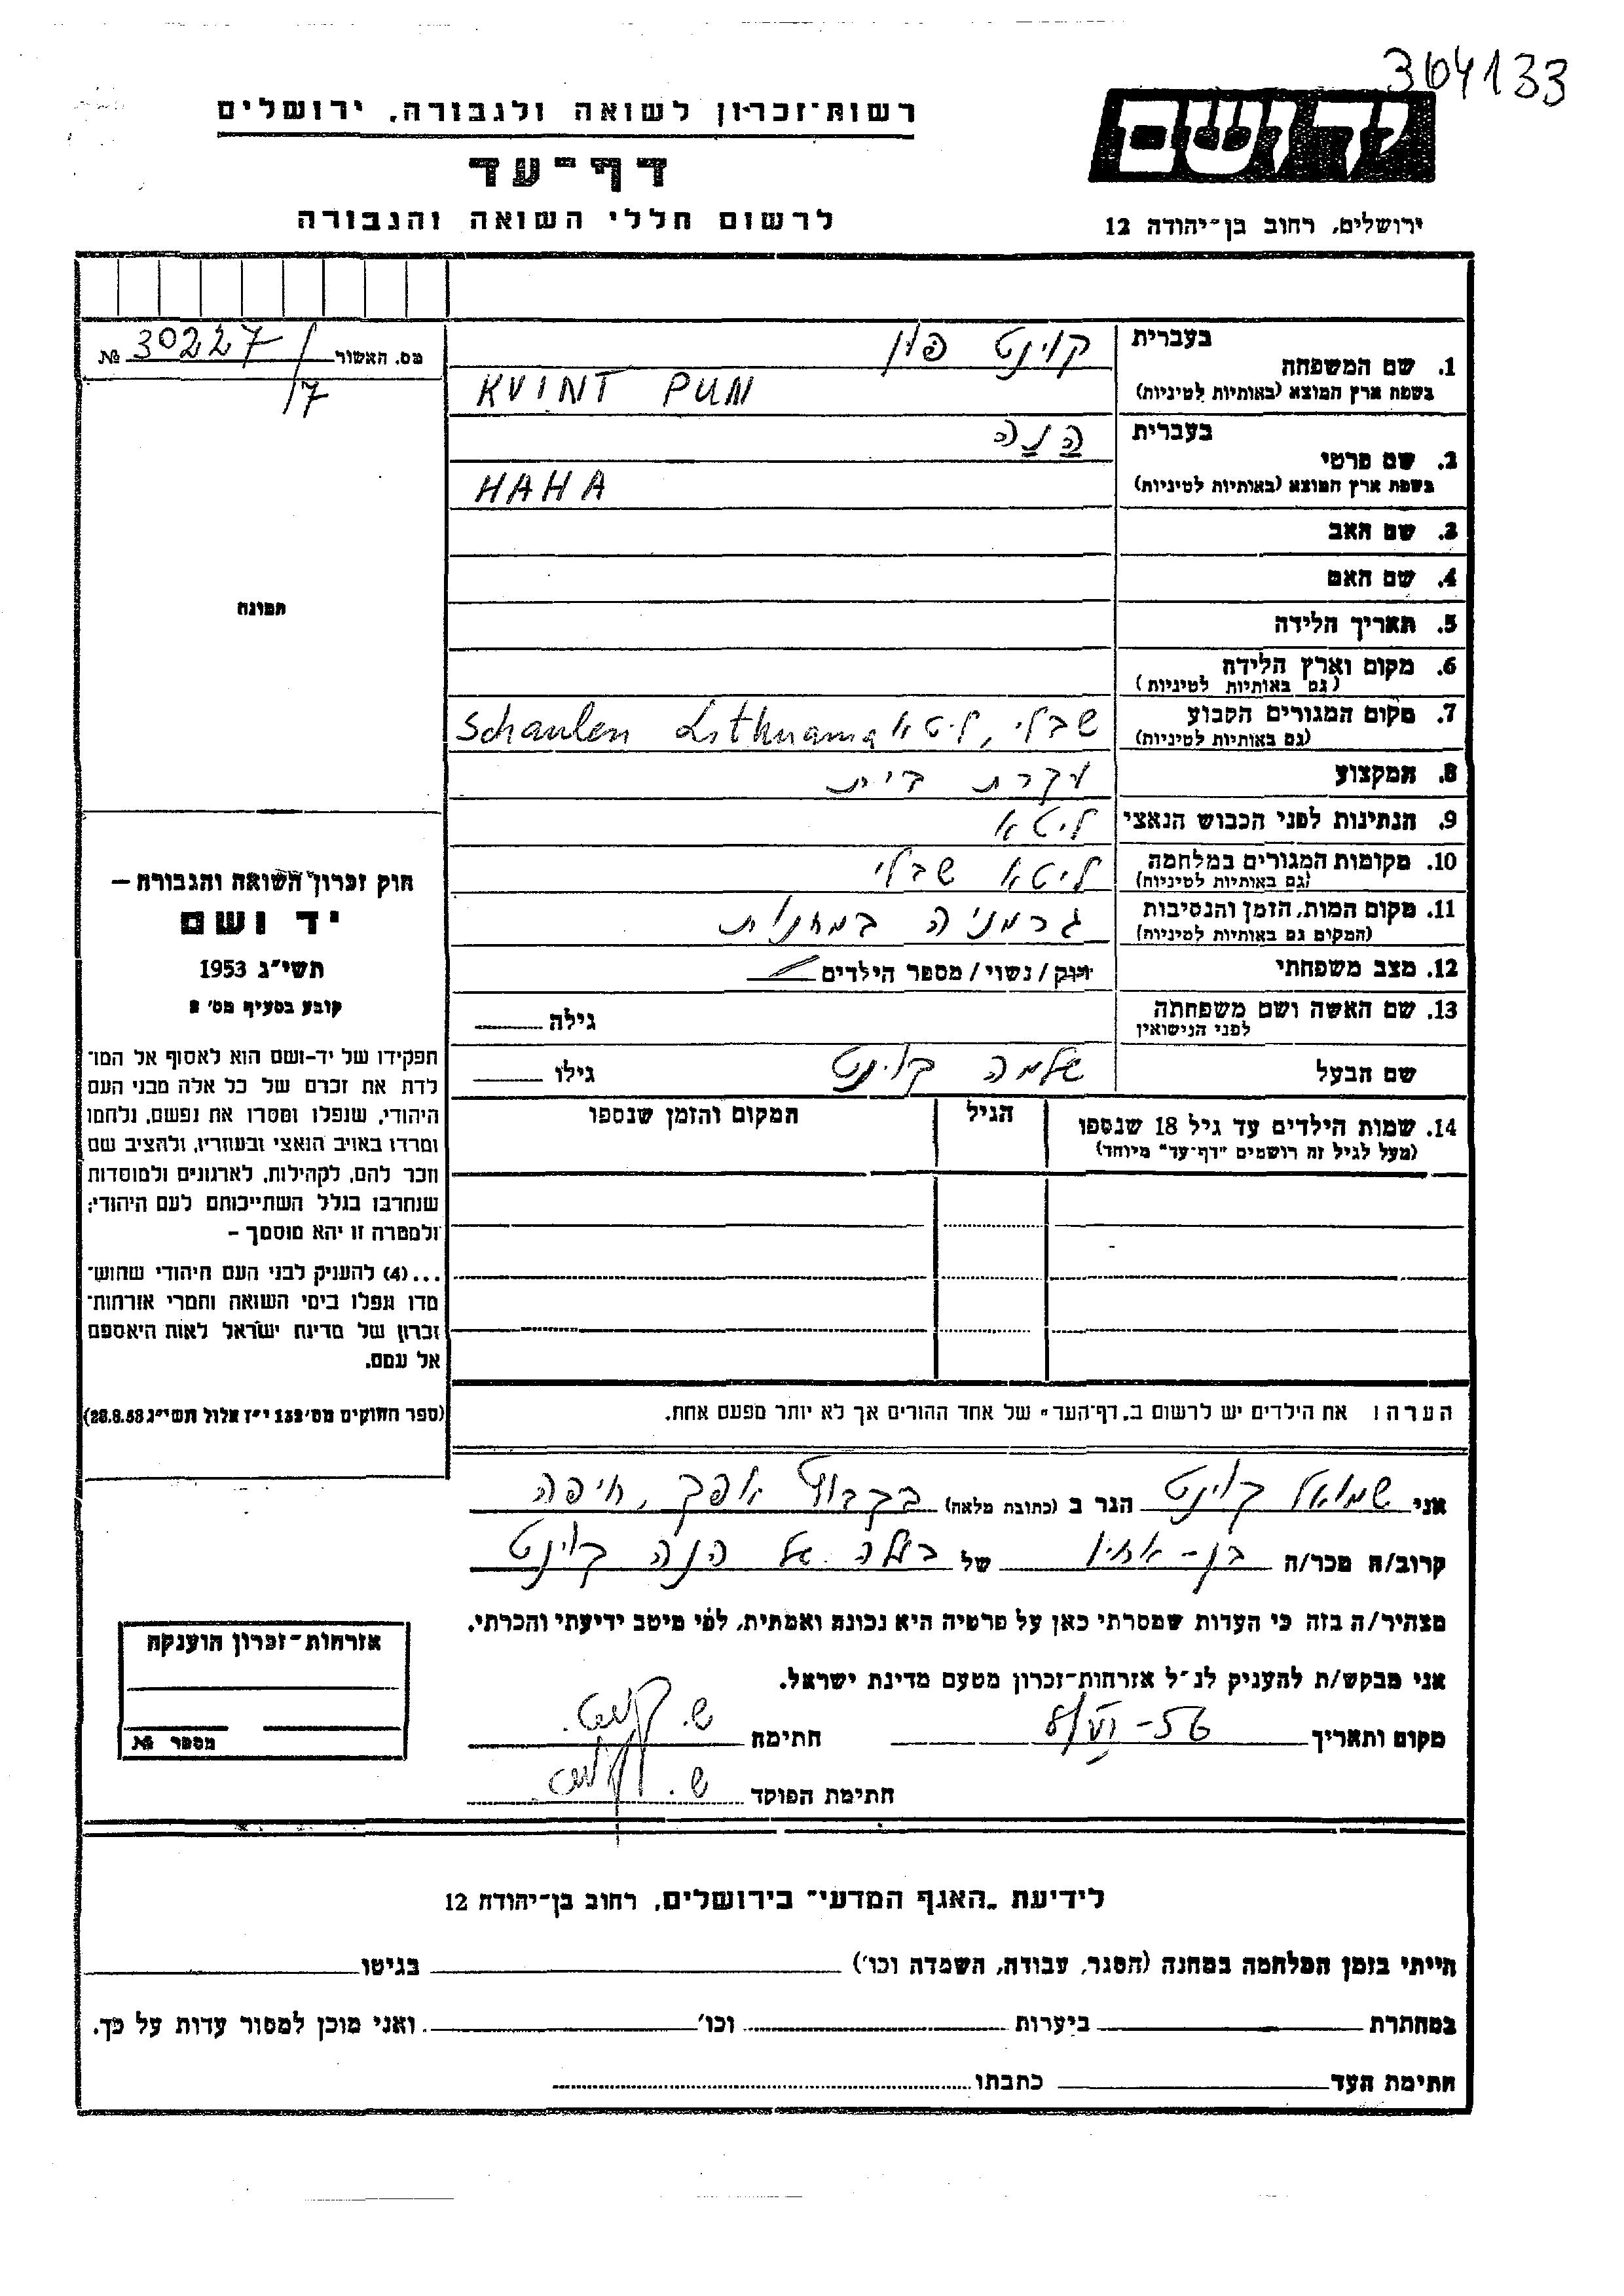 364133
רשות־זכרון לשואה ולגבורה, ירושלים
יד ושם
דף־עד
לרשום חללי השואה והגבורה
ירושלים, רחוב בן־יהודה 12
מס. האשור 30227/ №
/7
בעברית קוינט פון
1. שם המשפחה
בשפת ארץ המוצא (באותיות לטיניות) KVINT PUN
בעברית הנה
2. שם פרטי
בשפת ארץ המוצא (באותיות לטיניות) HAHA
3. שם האב
4. שם האם
תמונה
5. תאריך הלידה
6. מקום וארץ הלידה
(גם באותיות לטיניות)
7. מקום המגורים הקבוע שבלי, ליטא Schaulen Lithuania
(גם באותיות לטיניות)
8. המקצוע עקרת בית
9. הנתינות לפני הכבוש הנאצי ליטא
10. מקומות המגורים במלחמה ליטא שבלי
(גם באותיות לטיניות)
11. מקום המות, הזמן והנסיבות גרמניה במחנות
(המקום גם באותיות לטיניות)
12. מצב משפחתי רווק/נשוי/מספר הילדים
13. שם האשה ושם משפחתה גילה
לפני הנישואין
שם הבעל שלמה קוינט גילו
14. שמות הילדים עד גיל 18 שנספו הגיל המקום והזמן שנספו
(מעל לגיל זה רושמים "דף־עד" מיוחד)
חוק זכרון השואה והגבורה —
יד ושם
תשי"ג 1953
קובע בסעיף מס' 2
תפקידו של יד-ושם הוא לאסוף אל המו־
לדת את זכרם של כל אלה מבני העם
היהודי, שנפלו ומסרו את נפשם, נלחמו
ומרדו באויב הנאצי ובעוזריו, ולהציב שם
וזכר להם, לקהילות, לארגונים ולמוסדות
שנחרבו בגלל השתייכותם לעם היהודי;
ולמטרה זו יהא מוסמך –
...(4) להעניק לבני העם היהודי שהוש־
מדו ונפלו בימי השואה והמרי אזרחות־
זכרון של מדינת ישראל לאות היאספם
אל עמם.
(ספר החוקים מס' 132 י"ז אלול תשי"ג 28.8.53)
הערה: את הילדים יש לרשום ב„דף־העד" של אחד ההורים אך לא יותר מפעם אחת.
אני שמואל קוינט הגר ב (כתובת מלאה) בקבוץ אפק, חיפה
קרוב/ה מכר/ה בן-אחיו של בעלה של הנה קוינט
מצהיר/ה בזה כי העדות שמסרתי כאן על פרטיה היא נכונה ואמתית, לפי מיטב ידיעתי והכרתי.
אני מבקש/ת להעניק לנ"ל אזרחות־זכרון מטעם מדינת ישראל.
מקום ותאריך 8/VI-56 חתימה ש. קוינט.
חתימת הפוקד ש. קוינט.
אזרחות־זכרון הוענקה
מספר №
לידיעת „האגף המדעי" בירושלים, רחוב בן־יהודה 12
הייתי בזמן המלחמה במחנה (הסגר, עבודה, השמדה וכו') בגיטו
במחתרת ביערות וכו' ואני מוכן למסור עדות על כך.
חתימת העד כתבתו